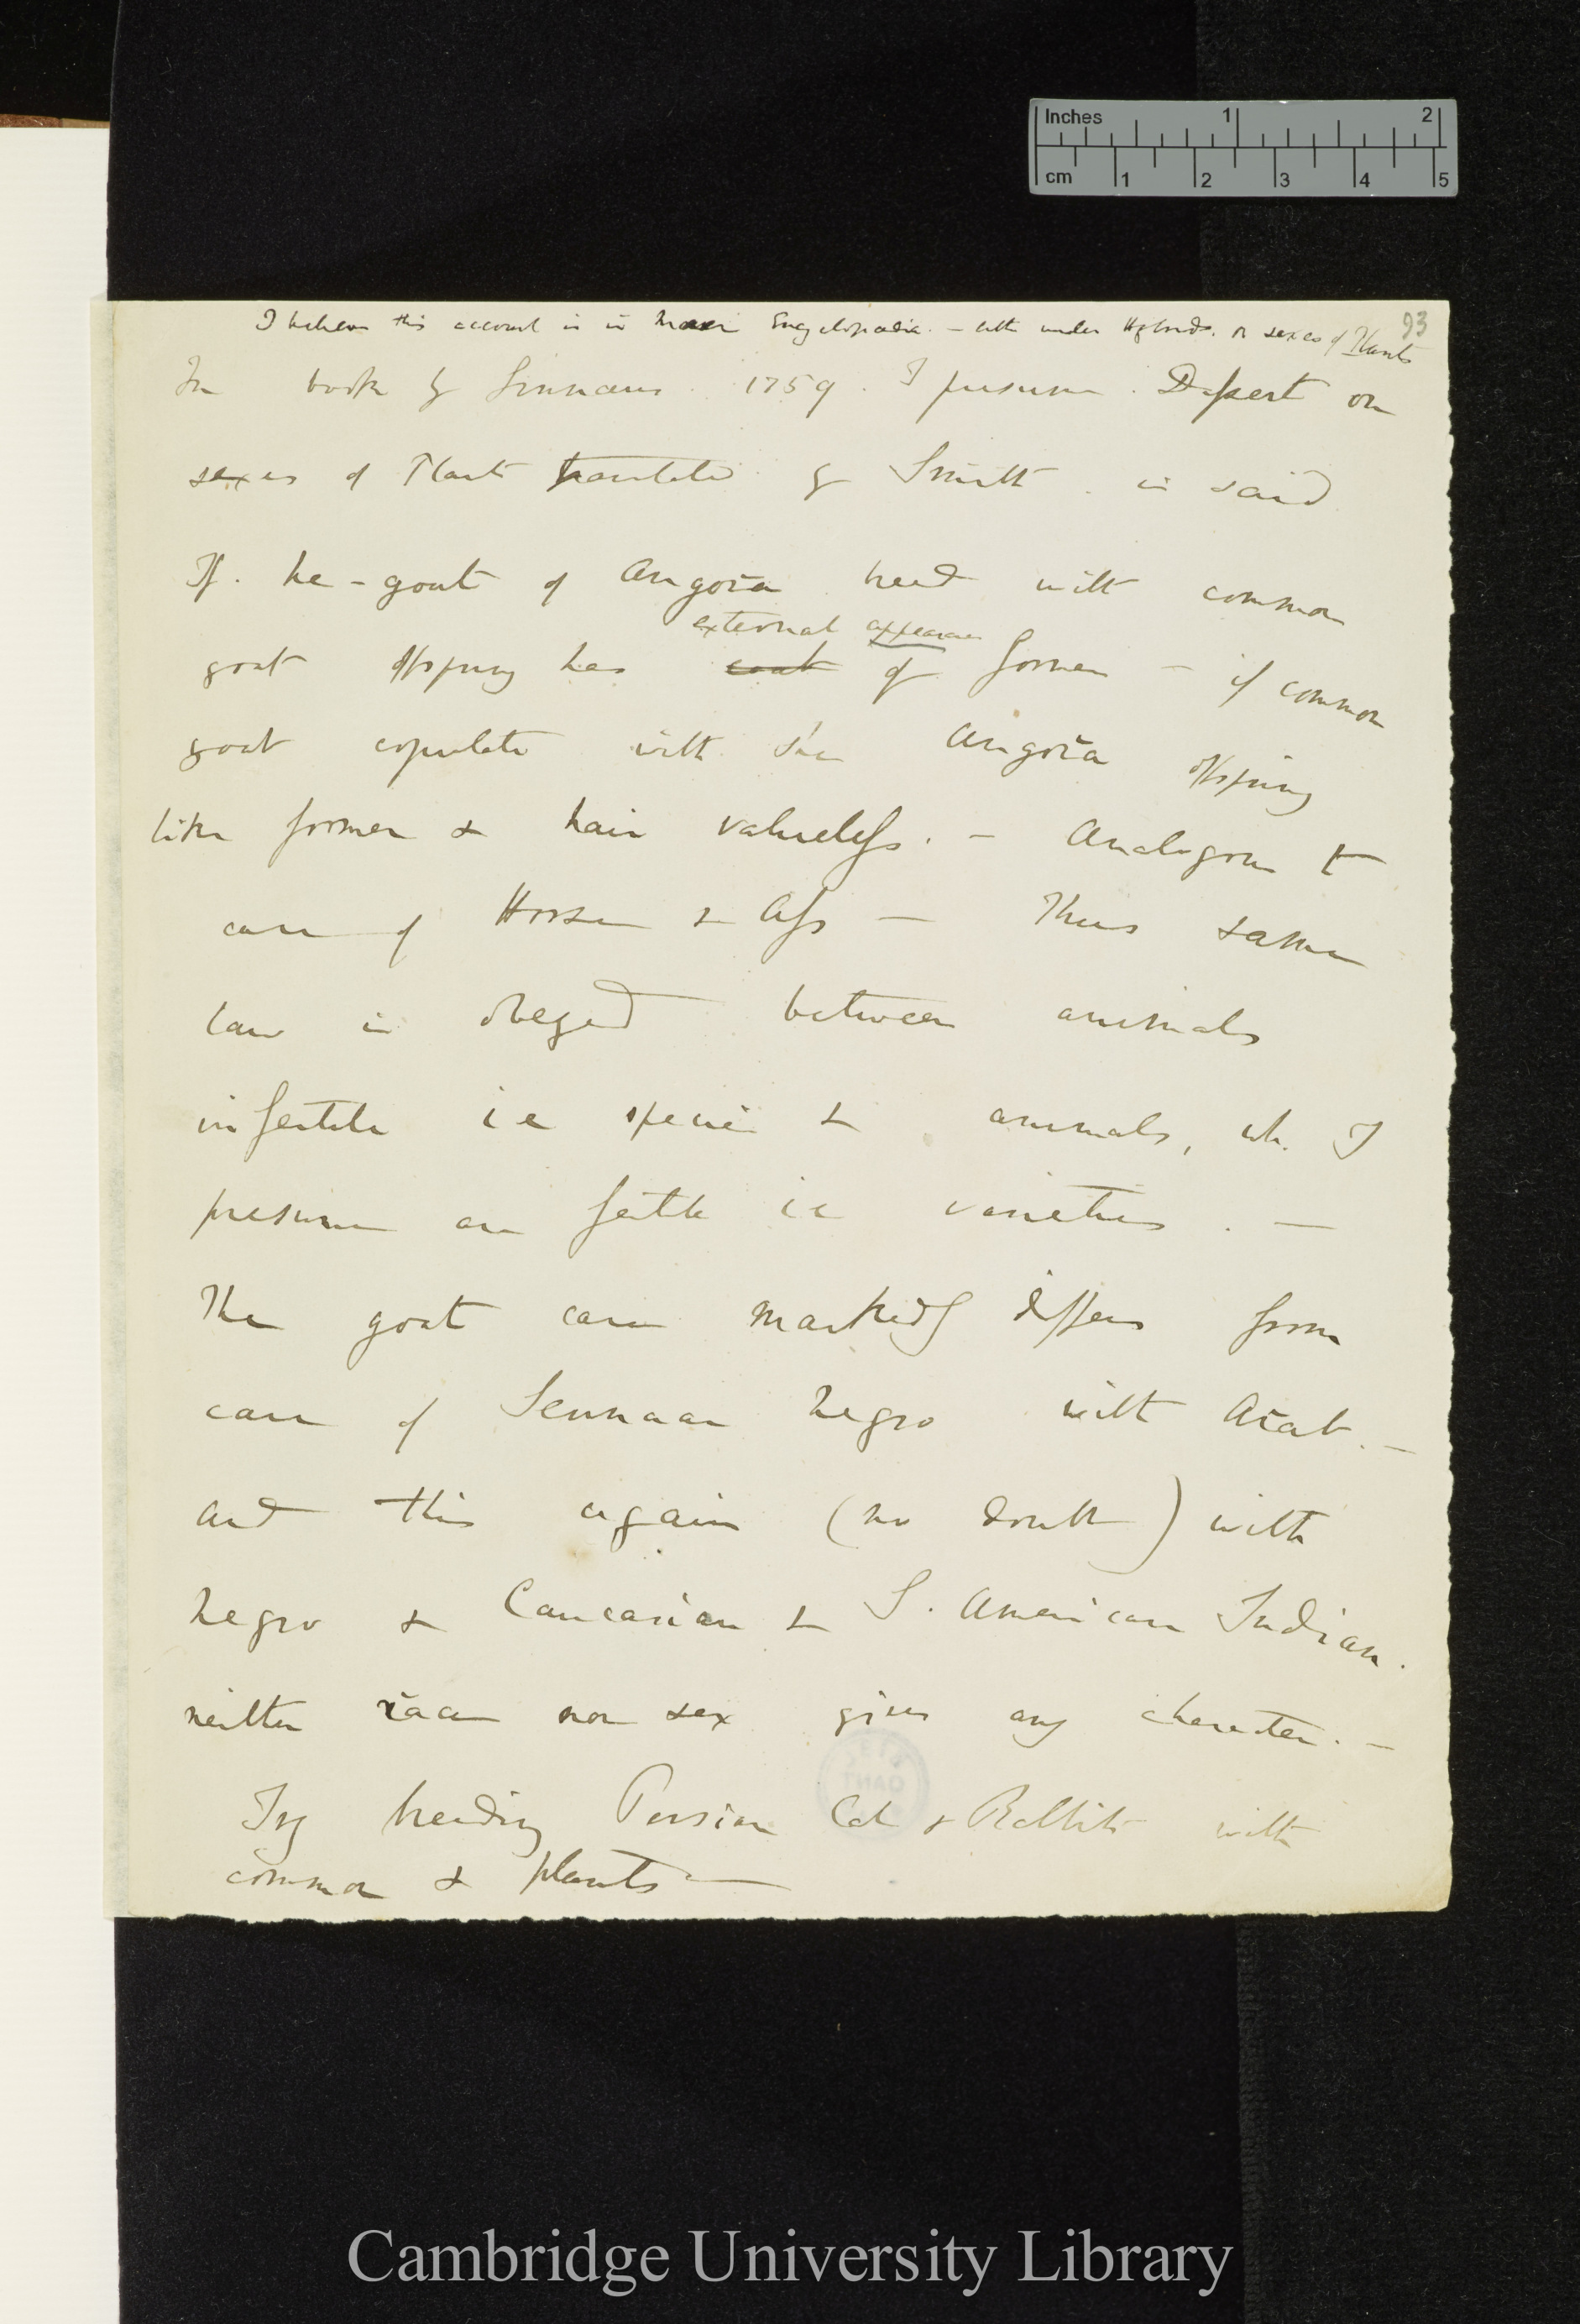 Inches 1 2
cm 1 2 3 4 5
93
I believe this account is in Encyclopædia. – either under Hybrids. or sexes of Plants
In book by Linnæus. 1759. I presume. Dissert on
sexes of Plant translated by Smith. is said
If. he-goat of Angora breed with common
external appearance
goat offspring has coat of former – if common
goat copulate with she Angora offspring
like former & hair valueless. – Analogous to
case of Horse & Ass – Thus same
law is obeyed between animals
infertile ie species & animals, wh. I
presume are fertile ie varieties. –
The goat case markedly differs from
case of Sennaar Negro with Arab. –
and this again (no doubt) with
Negro & Caucasian & S. American Indian.
neither race nor sex gives any character. –
Try breeding Persian Cat & Rabbits with
common & plants –
Cambridge University Library